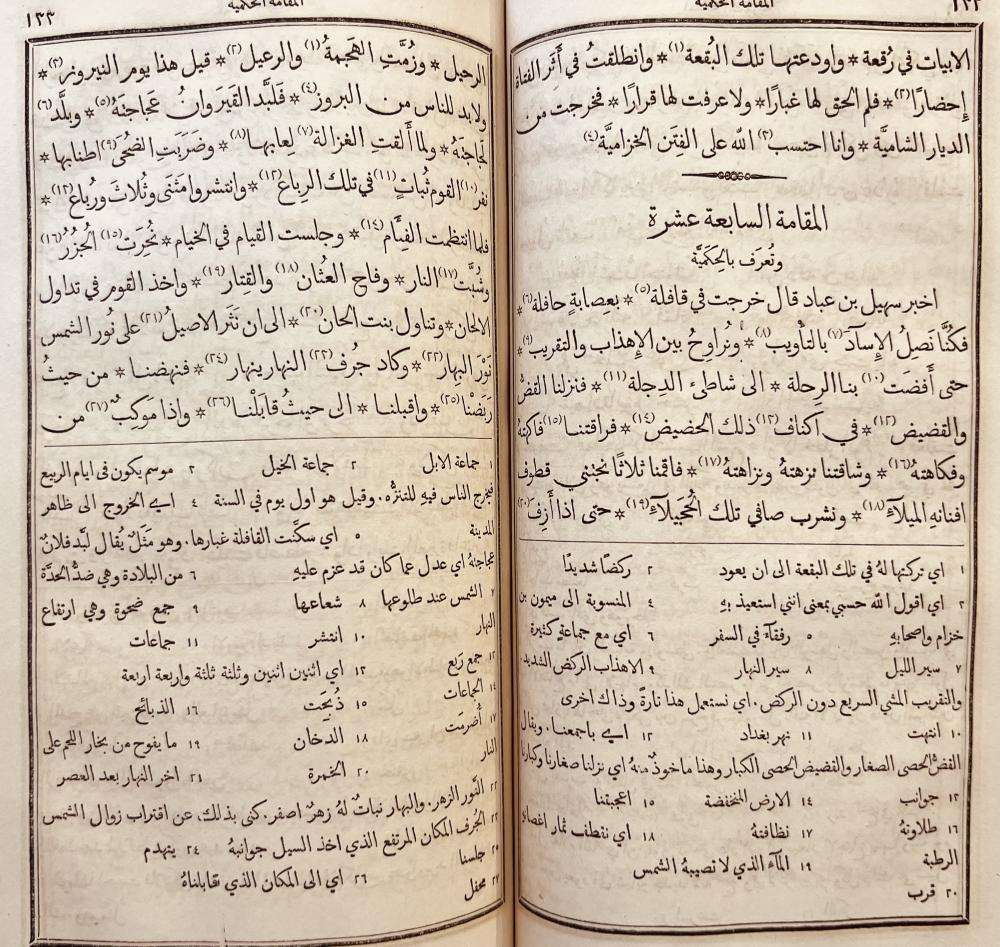 ١٢٢
المقامة الحكمية
الابيات في رُقعة * واودعتها تلك البُقعة (١) * وانطلقتُ في أَثَر الفتاة
إحضارًا (٢) * فلم الحق لها غبارًا * ولا عرفت لها قرارًا * فخرجت من
الديار الشاميَّة * وانا احتسب (٣) الله على الفِتَن الخزاميَّة (٤)
المقامة السابعة عشرة
وتُعرَف بالحِكَميَّة
اخبر سهيل بن عباد قال خرجت في قافلة (٥) * بعِصابةٍ حافلة (٦) *
فكُنَّا نَصِلُ الإِسآدَ (٧) بالتأويب (٨) * ونُراوِحُ بين الإِهذاب والتقريب (٩) *
حتى أَفضَت (١٠) بنا الرحلة * الى شاطئ الدِجلة (١١) * فنزلنا القضُّ
والقضيض (١٢) * في اكناف (١٣) ذلك الحضيض (١٤) * فراقتنا (١٥) فاكهتهُ
وفكاهتهُ (١٦) * وشاقتنا نزهتهُ ونزاهتهُ (١٧) * فاقمنا ثلاثًا نجتني قطوف
افنانهِ الميلآءِ (١٨) * ونشرب صافي تلك الحُجَيلآءِ (١٩) * حتى اذا أَزِفَ (٢٠)
١ اي تركتها لهُ في تلك البقعة الى ان يعود ٢ ركضًا شديدًا
٣ اي اقول الله حسبي بمعنى انني استعيذ بهِ ٤ المنسوبة الى ميمون بن
خزام واصحابهِ ٥ رفقآء في السفر ٦ اي مع جماعةٍ كثيرة
٧ سير الليل ٨ سير النهار ٩ الاهذاب الركض الشديد.
والتقريب المشي السريع دون الركض. اي نستعمل هذا تارةً وذاك اخرى
١٠ انتهت ١١ نهر بغداد ١٢ اي باجمعنا. ويقال
القضُّ الحصى الصغار والقضيض الحصى الكبار وهذا ماخوذٌ منهُ اي نزلنا صغارنا وكبارنا
١٣ جوانب ١٤ الارض المنخفضة ١٥ اعجبتنا
١٦ طلاوتهُ ١٧ نظافتهُ ١٨ اي نقتطف ثمار اغصانهِ
الرطبة ١٩ المآء الذي لا تصيبهُ الشمس
٢٠ قرب
١٢٣
المقامة الحكمية
الرحيل * وزُمَّتِ الهَجمةُ (١) والرعيل (٢) * قيل هذا يوم النيروز (٣) *
ولا بد للناس من البروز (٤) * فَلَبَّد القَيرَوانُ عَجاجتَهُ (٥) * وبلَّد (٦)
لَجاجتهُ * ولما أَلقتِ الغزالة (٧) لعابها (٨) * وضَرَبَتِ الضُحَى (٩) اطنابها *
نفر (١٠) القوم ثُباتٍ (١١) في تلك الرِباع (١٢) * وانتشروا مَثنَى وثُلاثَ ورُباع (١٣) *
فلما انتظمت الفِئَام (١٤) * وجلست القيام في الخيام * نُحِرَت (١٥) الجُزُر (١٦)
وشُبَّت (١٧) النار * وفاح العُثَان (١٨) والقِتار (١٩) * واخذ القوم في تداول
الالحان * وتناول بنت الحان (٢٠) * الى ان نَثَر الاصيلُ (٢١) على نُور الشمس
نَوْرَ البهار (٢٢) * وكاد جُرف (٢٣) النهار ينهار (٢٤) * فنهضنا * من حيثُ
رَبَضْنا (٢٥) * واقبلنا * الى حيثُ قابَلْنا (٢٦) * واذا مَوكِبٌ (٢٧) من
١ جماعة الابل ٢ جماعة الخيل ٣ موسم يكون في ايام الربيع
فيخرج الناس فيهِ للتنزُّه. وقيل هو اول يوم في السنة ٤ اي الخروج الى ظاهر
المدينة ٥ اي سكَّنت القافلة غبارها. وهو مَثَلٌ يُقال لبَّد فلانٌ
عجاجتهُ اي عدل عما كان قد عزم عليهِ ٦ من البلادة وهي ضدُّ الحدَّة
٧ الشمس عند طلوعها ٨ شعاعها ٩ جمع ضحوة وهي ارتفاع
النهار ١٠ انتشر ١١ جماعات
١٢ جمع رَبع ١٣ اي اثنين اثنين وثلثة ثلثة واربعة اربعة
١٤ الجماعات ١٥ ذُبِحَت ١٦ الذبائح
١٧ أُضرِمَت ١٨ الدخان ١٩ ما يفوح من بخار اللحم على
النار ٢٠ الخمرة ٢١ اخر النهار بعد العصر
٢٢ النَّور الزهر. والبهار نباتٌ لهُ زهرٌ اصفر. كنى بذلك عن اقتراب زوال الشمس
٢٣ الجُرف المكان المرتفع الذي اخذ السيل جوانبهُ ٢٤ ينهدم
٢٥ جلسنا ٢٦ اي الى المكان الذي تقابلناهُ
٢٧ محفل